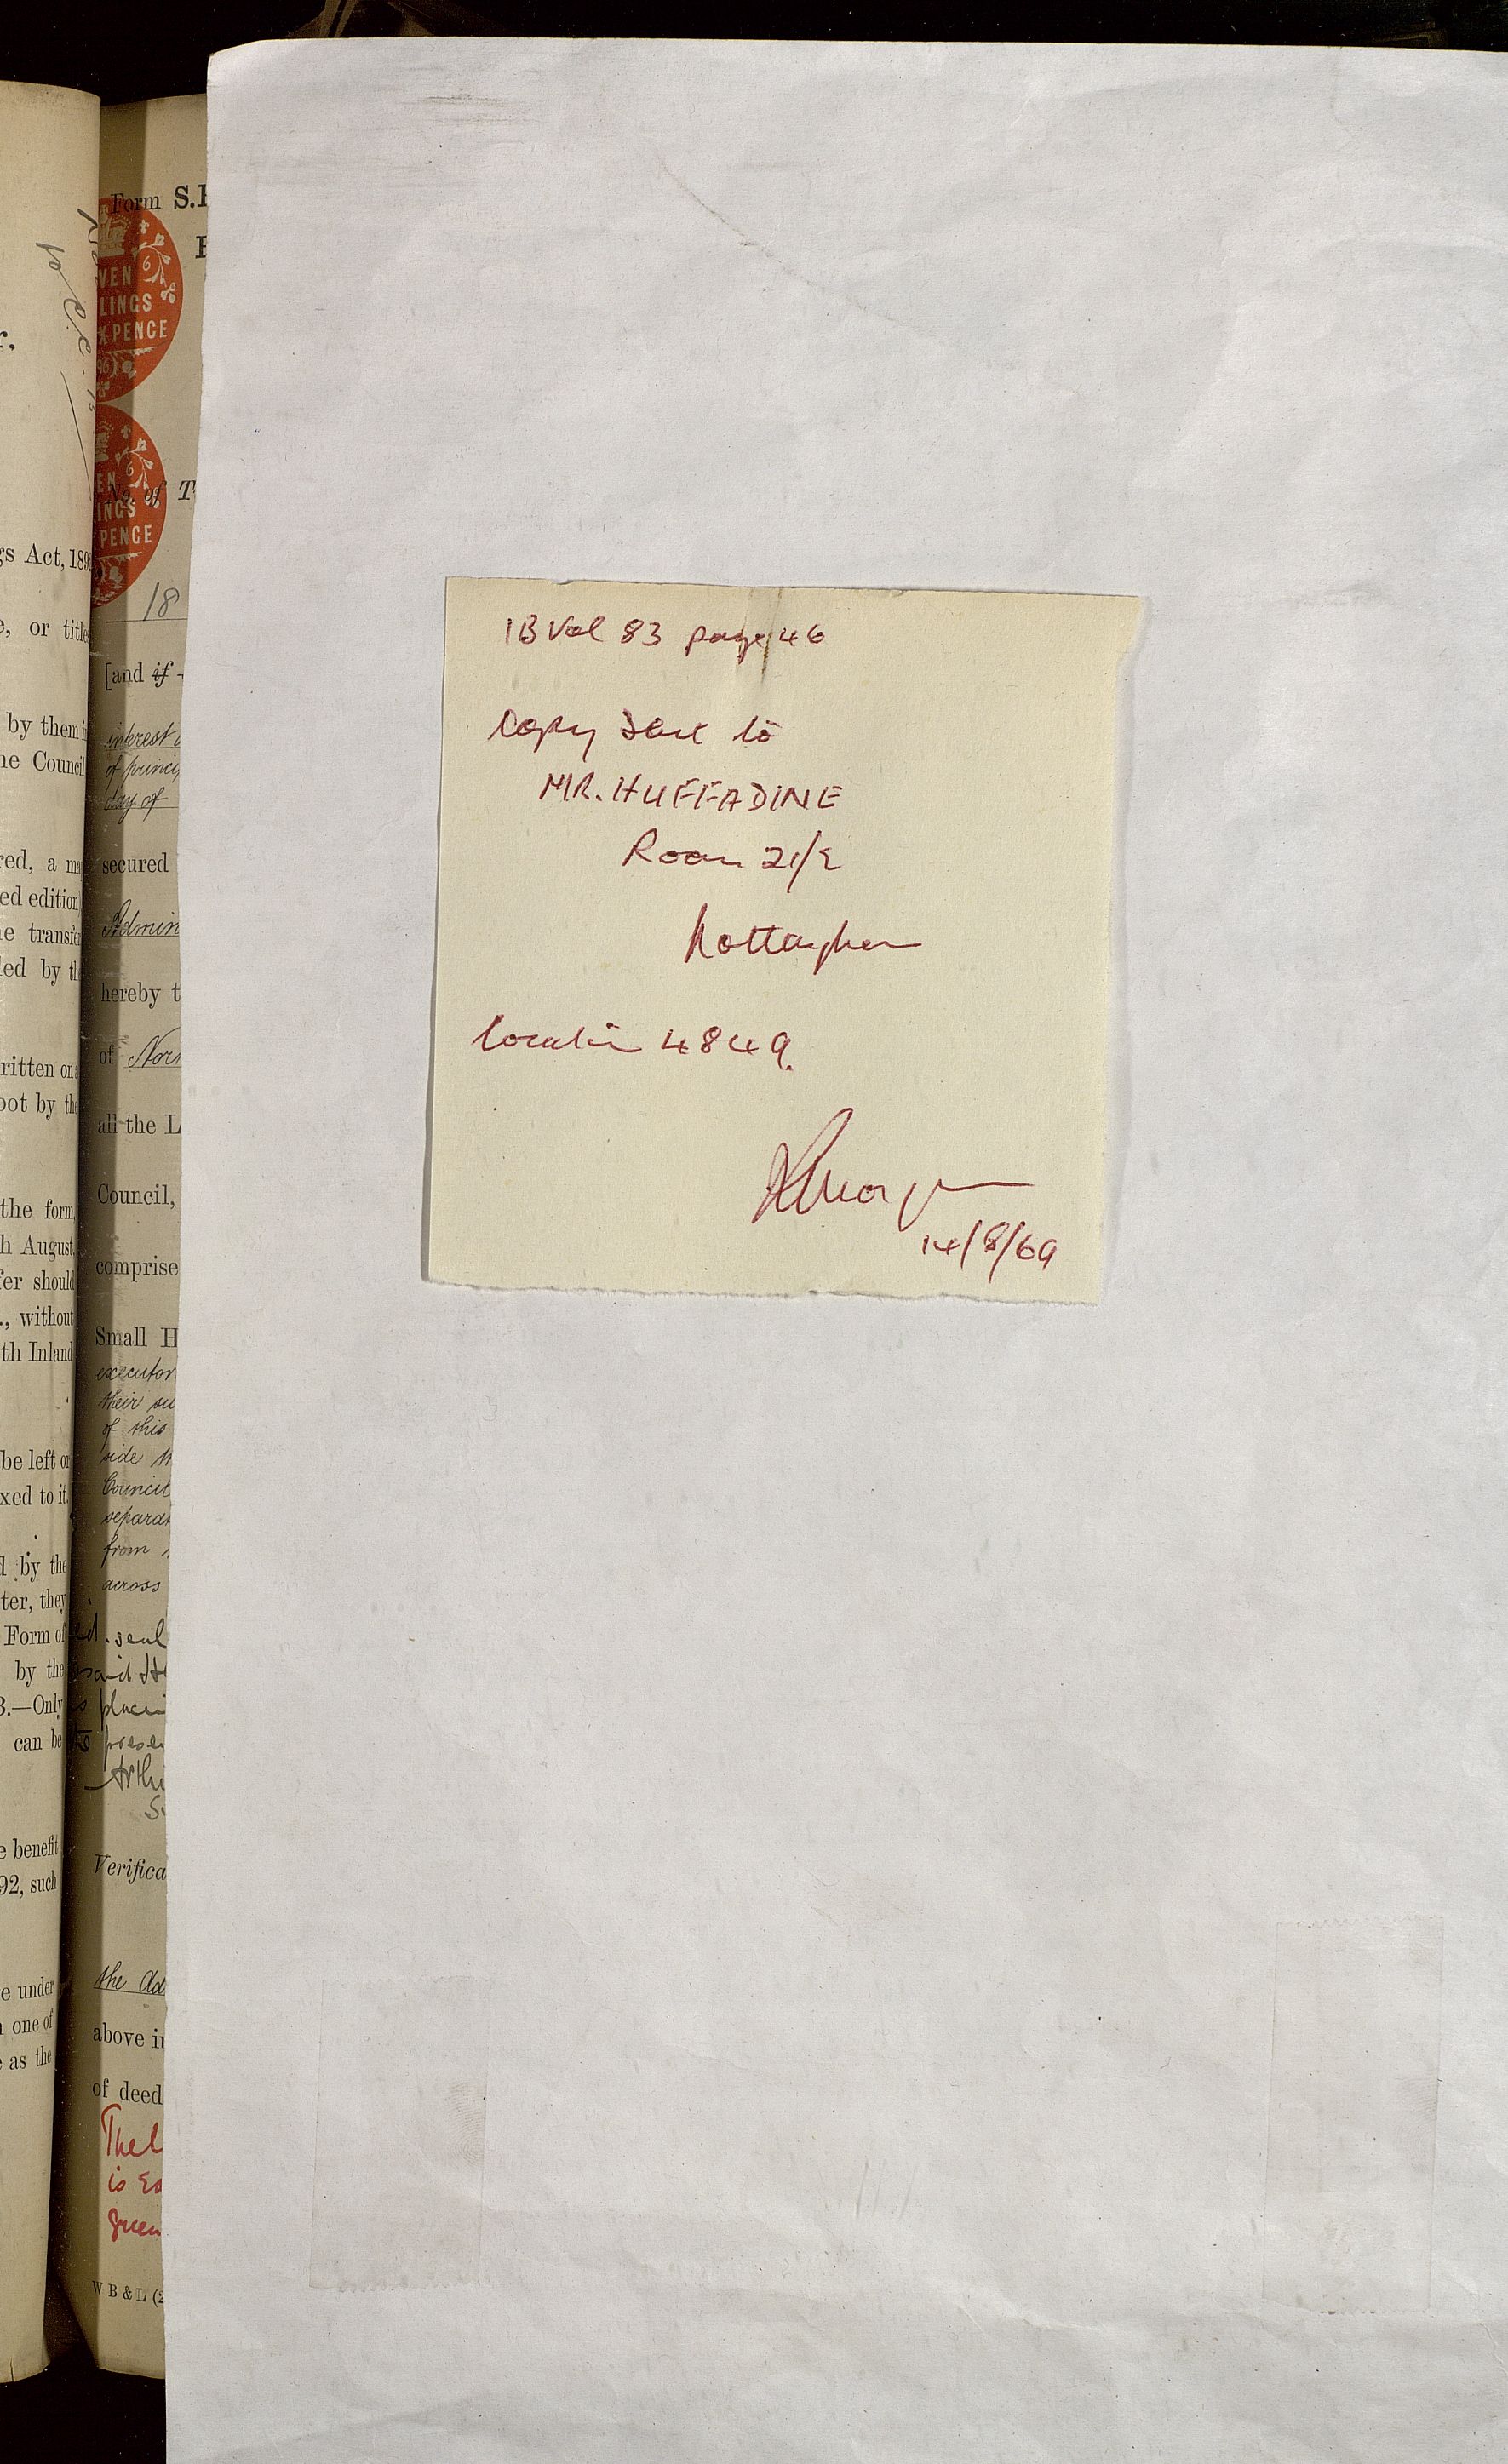 r.
to C.C.
gs Act, 189
e, or title
by them i
he Council
red, a ma
ed edition
he transfe
led by th
ritten on a
oot by the
the form,
h August,
fer should
., without
th Inland
be left or
xed to it.
d by the
ter, they
Form of
by the
3.—Only
can be
e benefit
92, such
e under
n one of
e as the
Form S.
VEN
LINGS
XPENCE
EN
INGS
PENCE
No. of T
18
[and if
interest
of princi
day of
secured
Admin
hereby t
of Nor
all the L
Council,
comprise
Small H
executor
their su
of this
side
Council
separat
from
across
seal
said H
placi
presen
Arthu
Verifica
the Ad
above in
of deed
The l
is
green
W B & L (2
IB Vol 83 page 46
Copy sent to
MR. HUFFADINE
Room 21/2
Nottingham
location 4849.
14/8/69